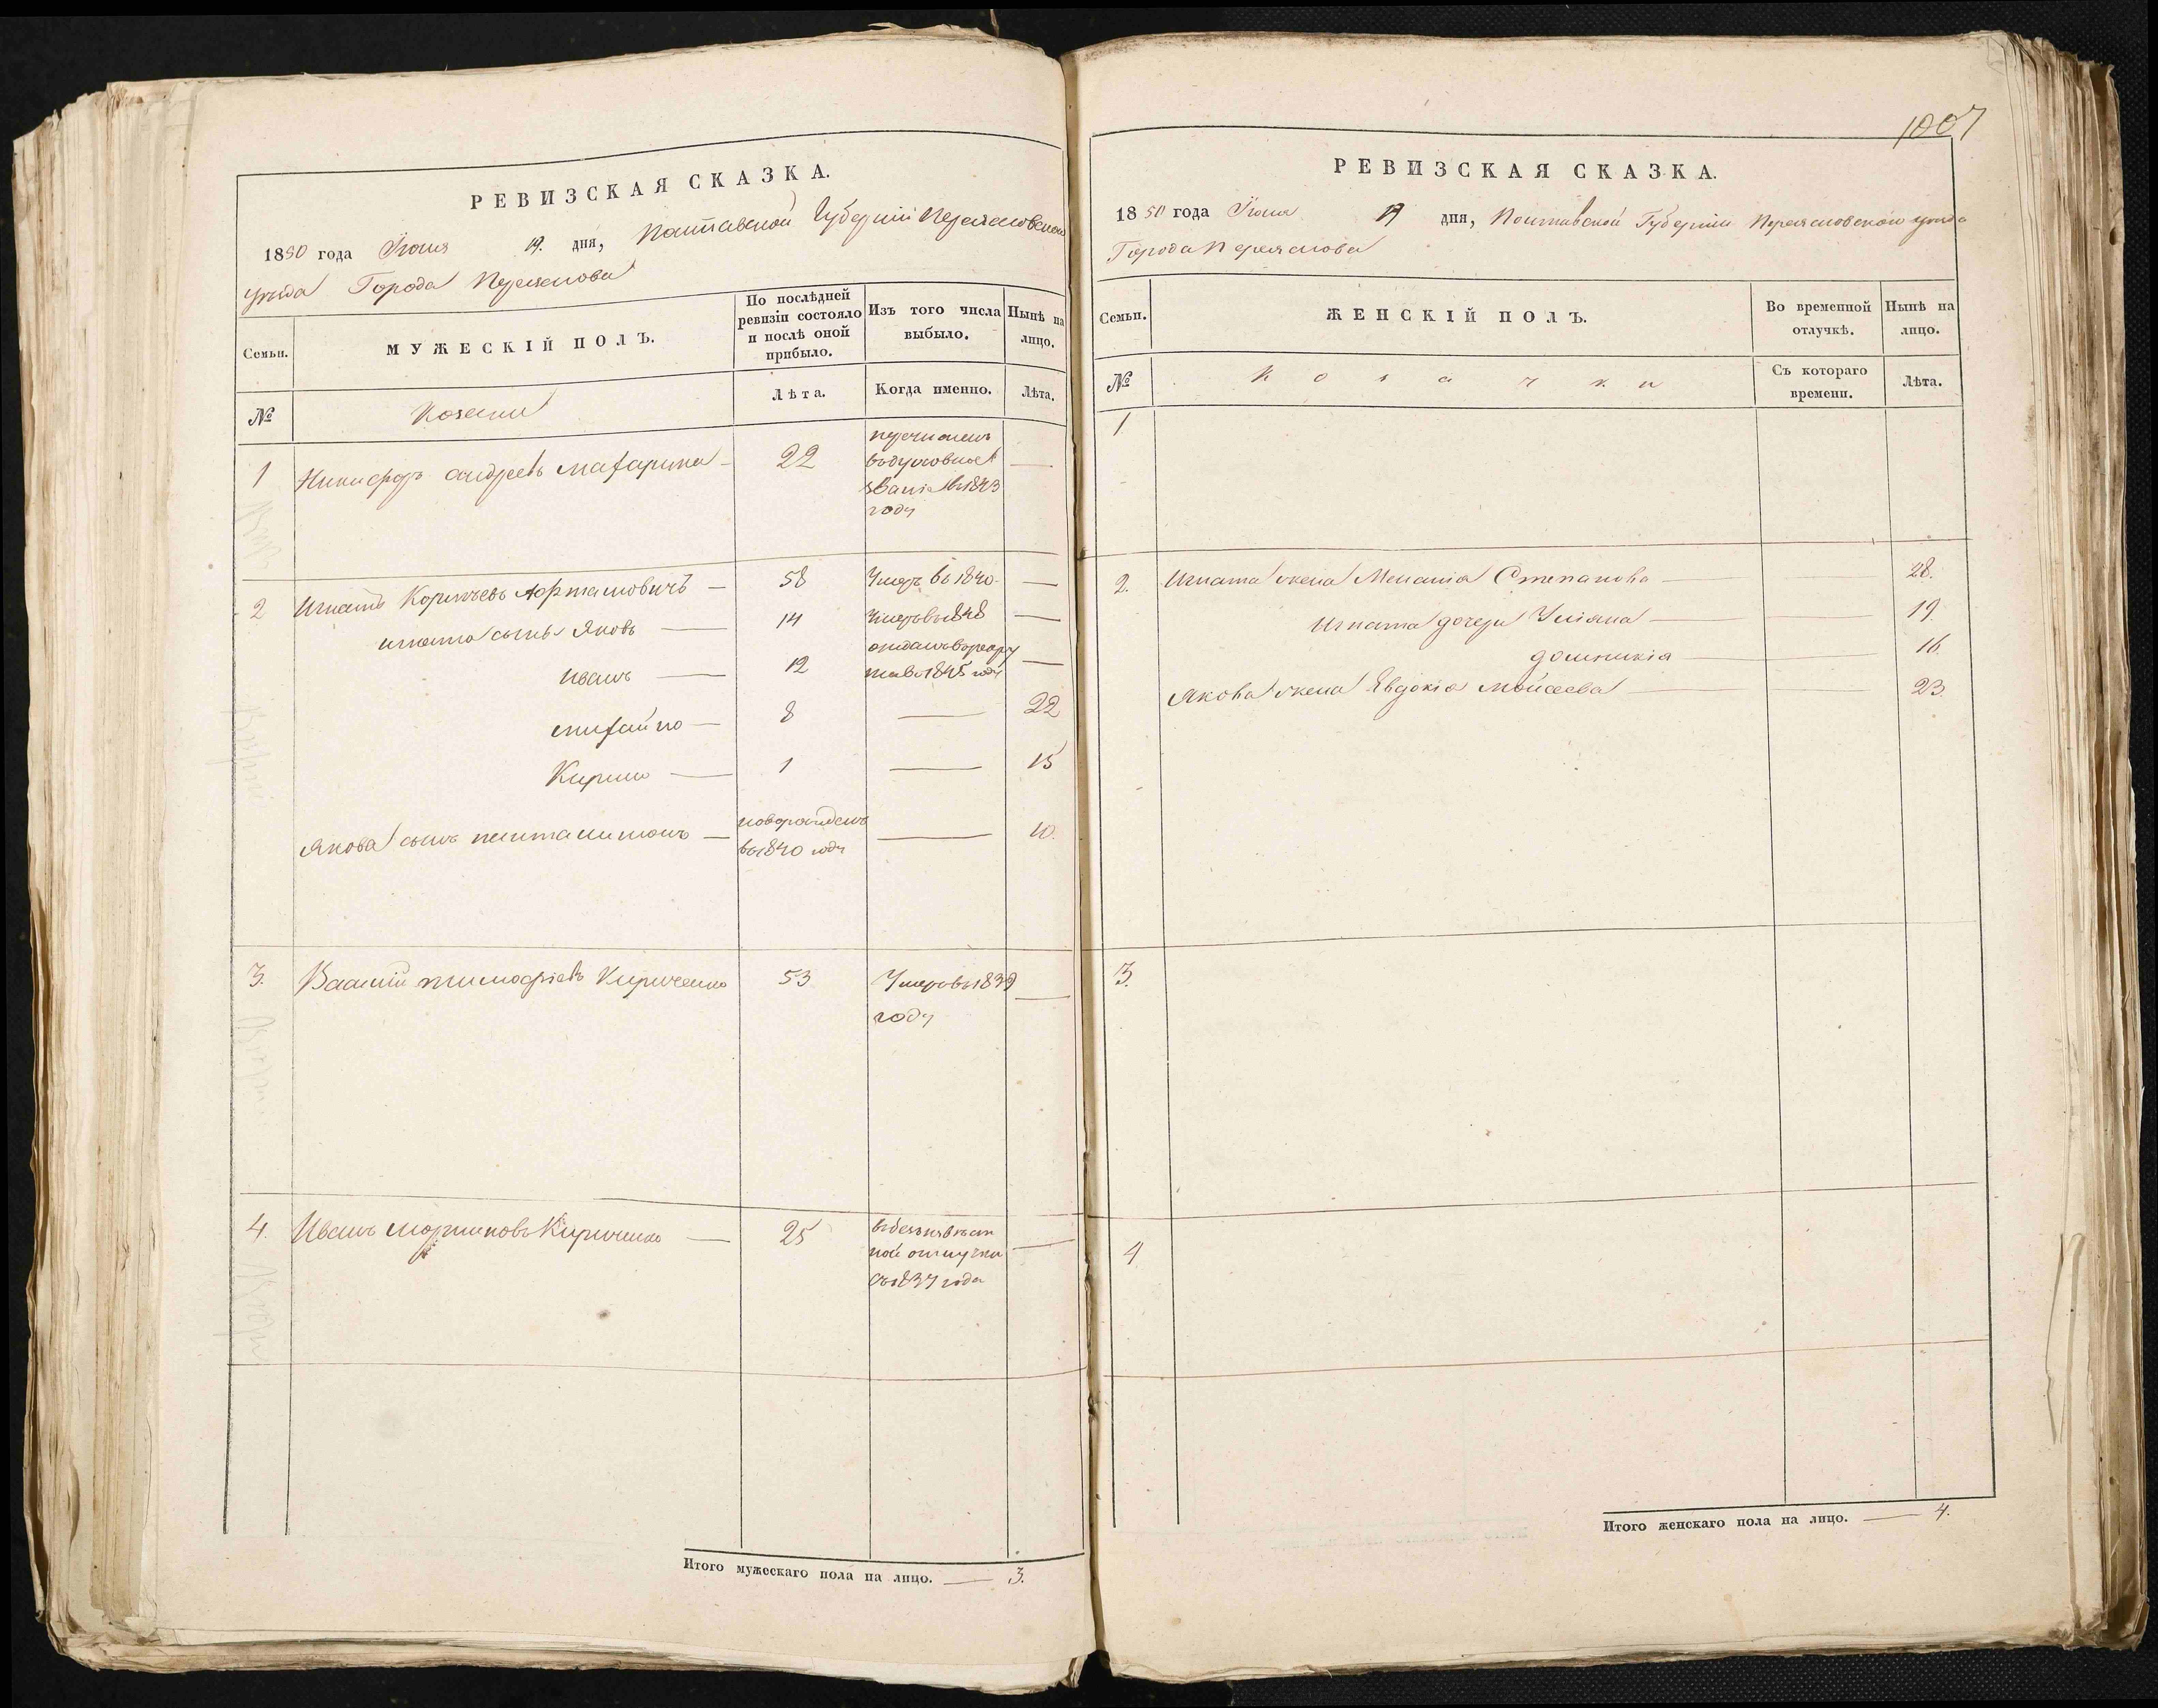 РЕВИЗСКАЯ СКАЗКА.
1850 года Іюня 19. дня, Полтавской Губерніи Переяславского
уезда Города Переяслова
Семьи.
МУЖЕСКІЙ ПОЛЪ.
По послѣдней
ревизіи состояло
и послѣ оной
прибыло.
Изъ того числа
выбыло.
Нынѣ на
лицо.
№
Козаки
Лѣта.
Когда именно.
Лѣта.
1 Никифоръ Андреевъ 22
перечисленъ
въ духовное
званіе въ 1843
году
2 Игнатъ Артамовичъ — 58 Умеръ въ 1840 —
Игната сынъ Яковъ — 14 Умеръ въ 1848 —
Иванъ — 12 отданъ въ рекру
ты въ 1845 году —
Михайло — 8 — 22
Кирило — 1 — 15
Якова сынъ Пантилимонъ — новорожденъ
въ 1840 году — 10.
3. Василій Тимофіевъ Кириченко 53 Умеръ въ 1839
году —
4. Иванъ Мартиновъ Кириченко — 25
въ безъизвѣст
ной отлучки
съ 1837 года —
Итого мужескаго пола на лицо. — 3.
1007
РЕВИЗСКАЯ СКАЗКА.
1850 года Іюня 19 дня, Полтавской Губерніи Переясловского уезда
Города Переяслова
Семьи.
ЖЕНСКІЙ ПОЛЪ.
Во временной
отлучкѣ.
Нынѣ на
лицо.
№
Козачки
Съ котораго
времени.
Лѣта.
1
2. Игната жена Меланія Степанова — 28.
Игната дочери Уліяна — 19.
16.
Якова жена Евдокія Мойсеева — 23.
3.
4
Итого женскаго пола на лицо. — 4.